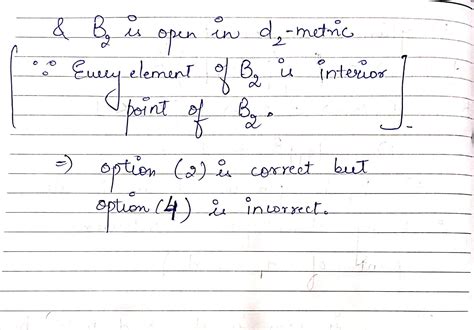 & B₂ is open in d₂-metric
[∵ Every element of B₂ is interior
point of B₂.].
⇒ option (2) is correct but
option (4) is incorrect.